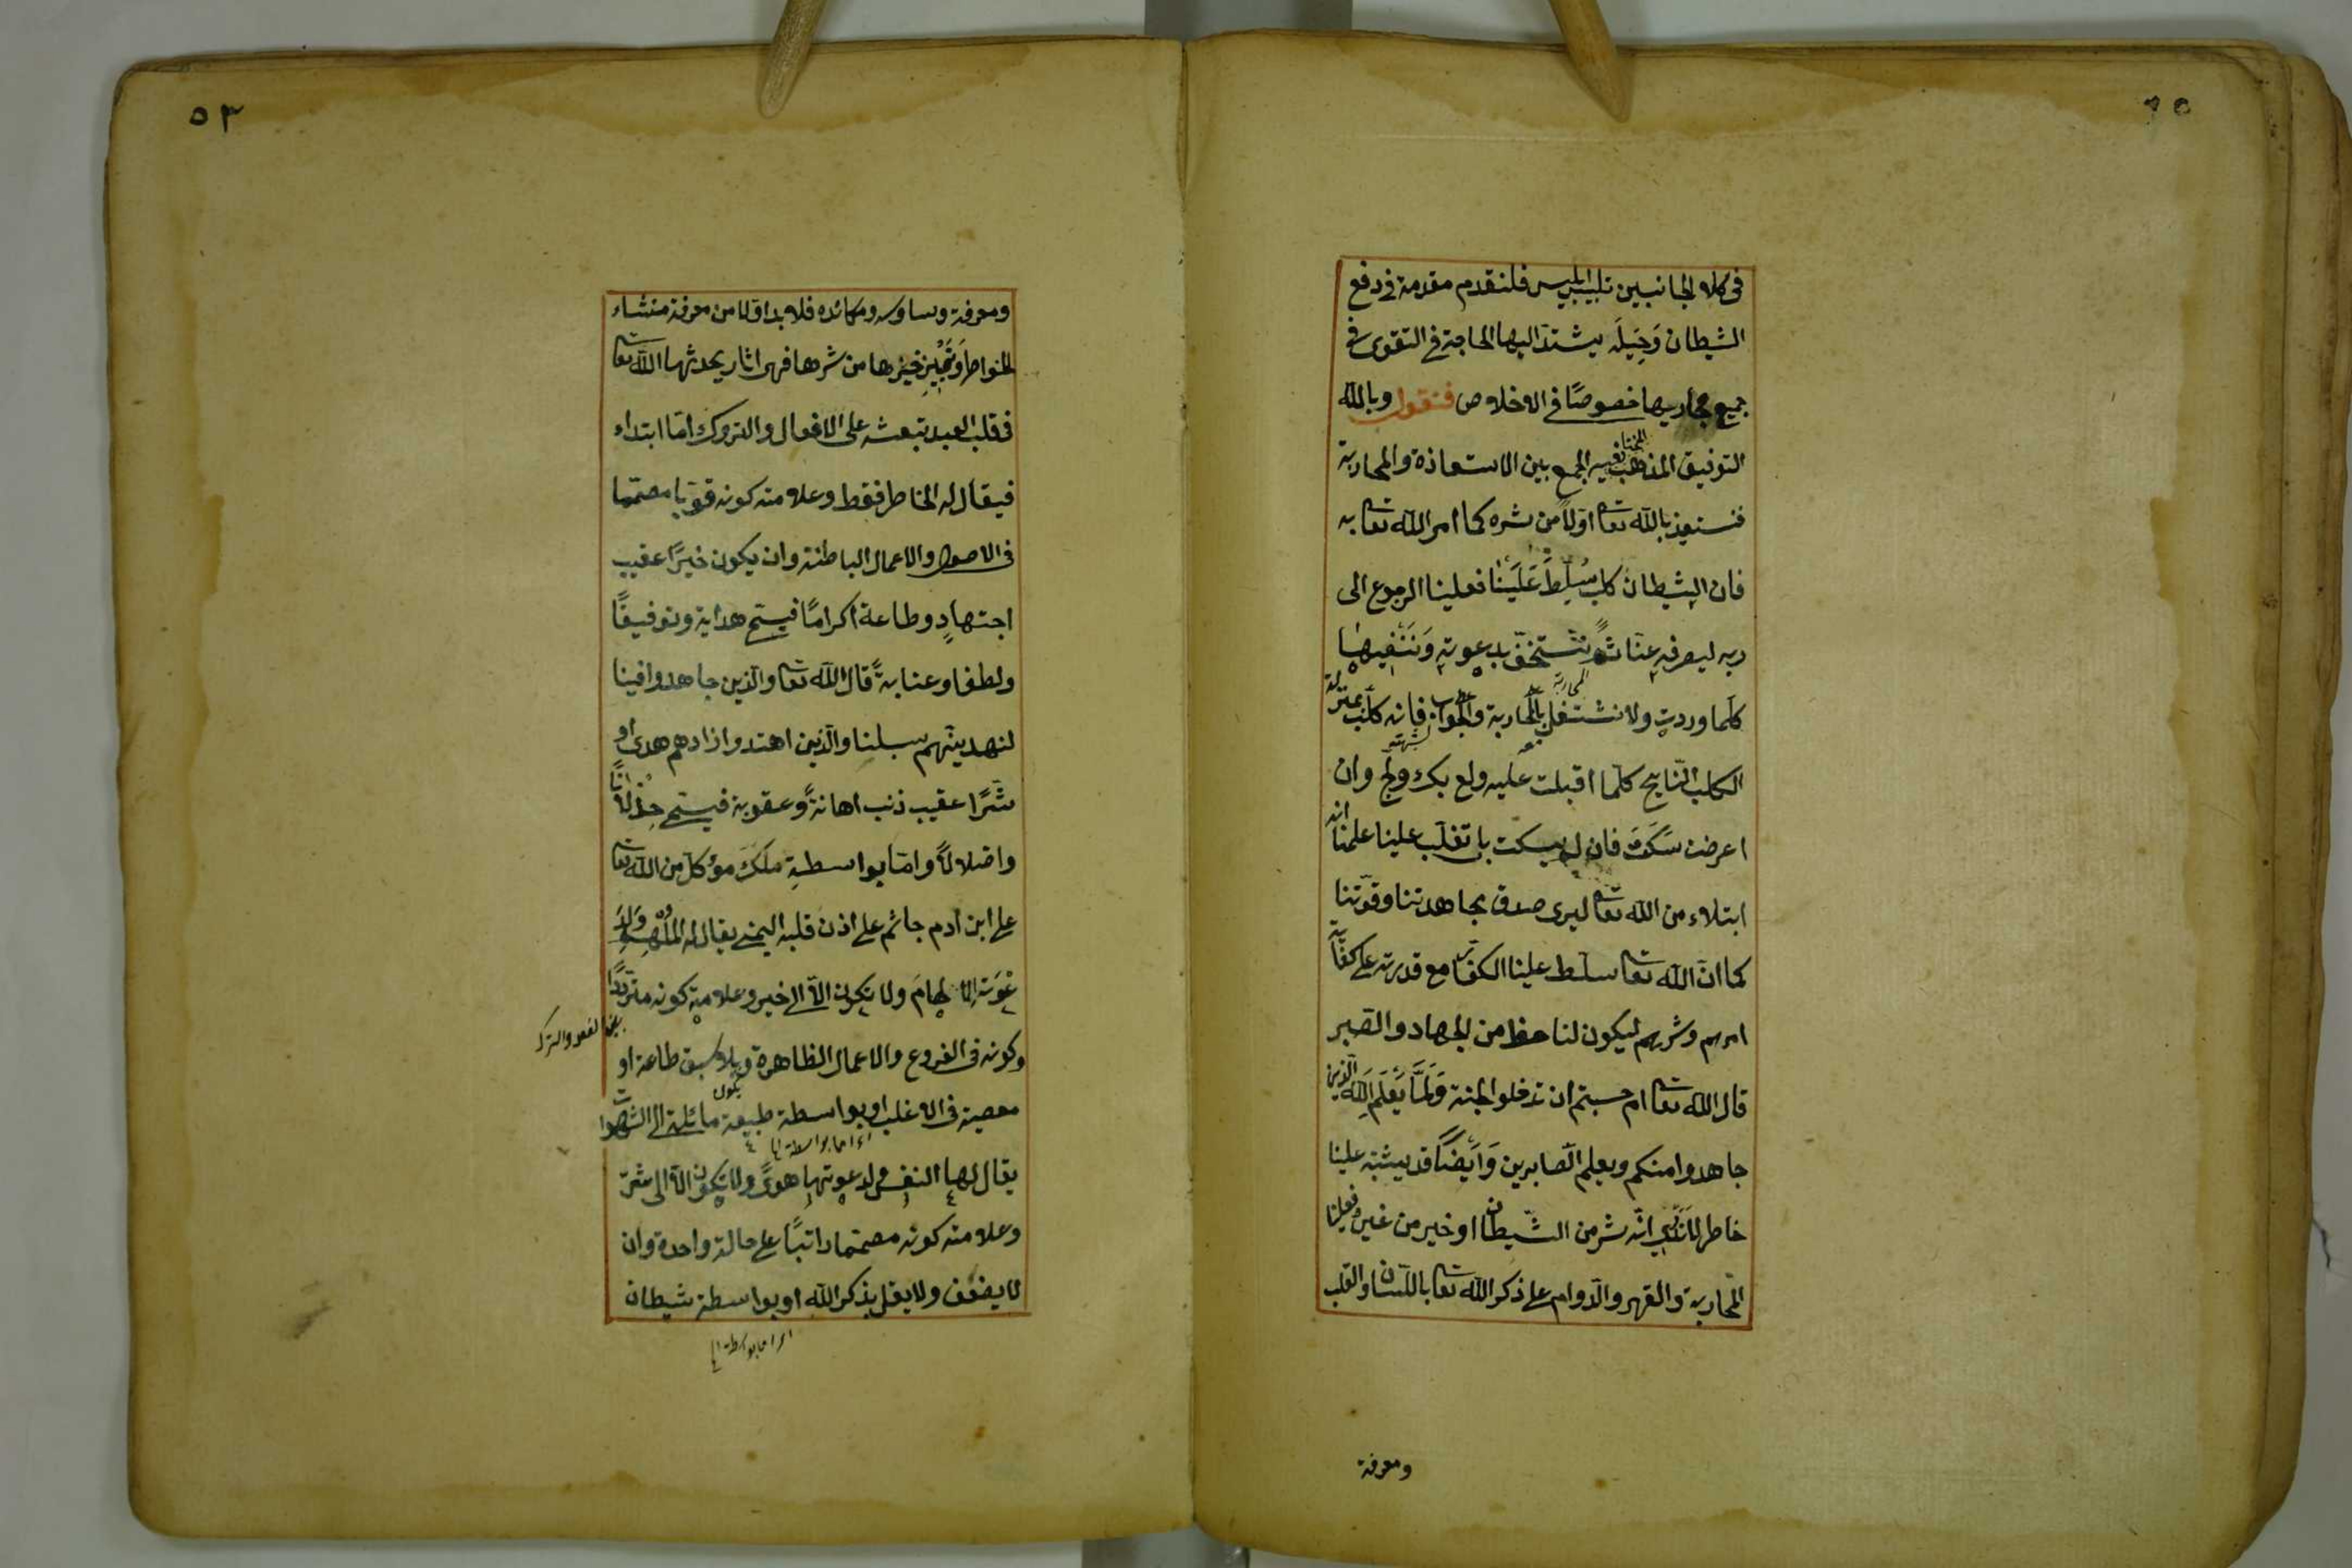 في كلا الجانبين تلبيس ابليس فلنقدم مقدمة في دفع
الشيطان وَحِيَلَه يشتدّ اليها الحاجة في التقوى في
جميع مجاريها خصوصًا في الاخلاص فنقول وبالله
التوفيق المذهب المختار فيه الجمع بين الاستعاذة والمحاربة
فنستعيذ بالله تعا اوّلًا من شره كما امر الله تعا به
فان الشيطان كلب سُلِّطَ عَلَيْنا فعلينا الرجوع الى
ربه ليصرفه عنّا ثم نستخفّ بدعوته وَنَنْفيها
كلّما وردت ولا نشتغل بالمحاربة والجواب فانه كلب بمنزلة
المحاربة
الكلب النّابح كلّما اقبلت عليه ولع بك ولجّ وان
اعرضت سَكَتَ فان لم يسكت بل تغلّب علينا علمنا انه
ابتلاء من الله تعا ليرى صدق مجاهدتنا وقوّتنا
كما انّ الله تعا سلّط علينا الكفّار مع قدرته على كفاية
امرهم وشرهم ليكون لنا حظ من الجهاد والصّبر
قال الله تعا ام حسبتم ان تدخلوا الجنة وَلَمَّا يَعْلَمِ اللّه الّذين
جاهدوا منكم ويعلم الصّابرين وَأَيْضًا قد يشتبه علينا
خاطر لا ندري انّه شر من الشّيطان او خير من غيره فعلينا
المحاربة والقهر والدّوام على ذكر الله تعا باللّسان والقلب
ومعرفة
٥٣
ومعرفة وساوسه ومكائده فلا بد اوّلا من معرفة منشاء
الخواطر وَتَمْييز خيرها من شرها فهى اثار يحدثها اللّه تعا
في قلب العبد تبعثه على الافعال والتروك امّا ابتداء
فيقال له الخاطر فقط وعلامته كونه قويّا مصمّما
في الاصول والاعمال الباطنة وان يكون خيرًا عقيب
اجتهادٍ وطاعة اكرامًا فيسمّى هداية وتوفيقًا
ولطفا وعناية قال الله تعا والّذين جاهدوا فينا
لنهدينّهم سبلنا والّذين اهتدوا زادهم هدى او
شرًّا عقيب ذنب اهانةً وعقوبة فيسمّى خذلانًا
واضلالًا وامّا بواسطة ملك موكّل من الله تعا
على ابن ادم جاثم على اذن قلبه اليمنى يقال له الملهم وَلِدَ
عْوَته الالهامَ ولا يكون الّا الى خير وعلامته كونه متردّدًا
بين الفعل والترك
وكونه في الفروع والاعمال الظاهرة وبلا سبق طاعة او
معصية في الاغلب او بواسطة طبيعة مائلة الى الشهوات
يقال لها النفس ولدعوتها هوىً ولا يكون الّا الى شرّ
وعلامته كونه مصمّما راتبًا على حالة واحدة وان
لا يضعف ولا يقل بذكر الله او بواسطة شيطان